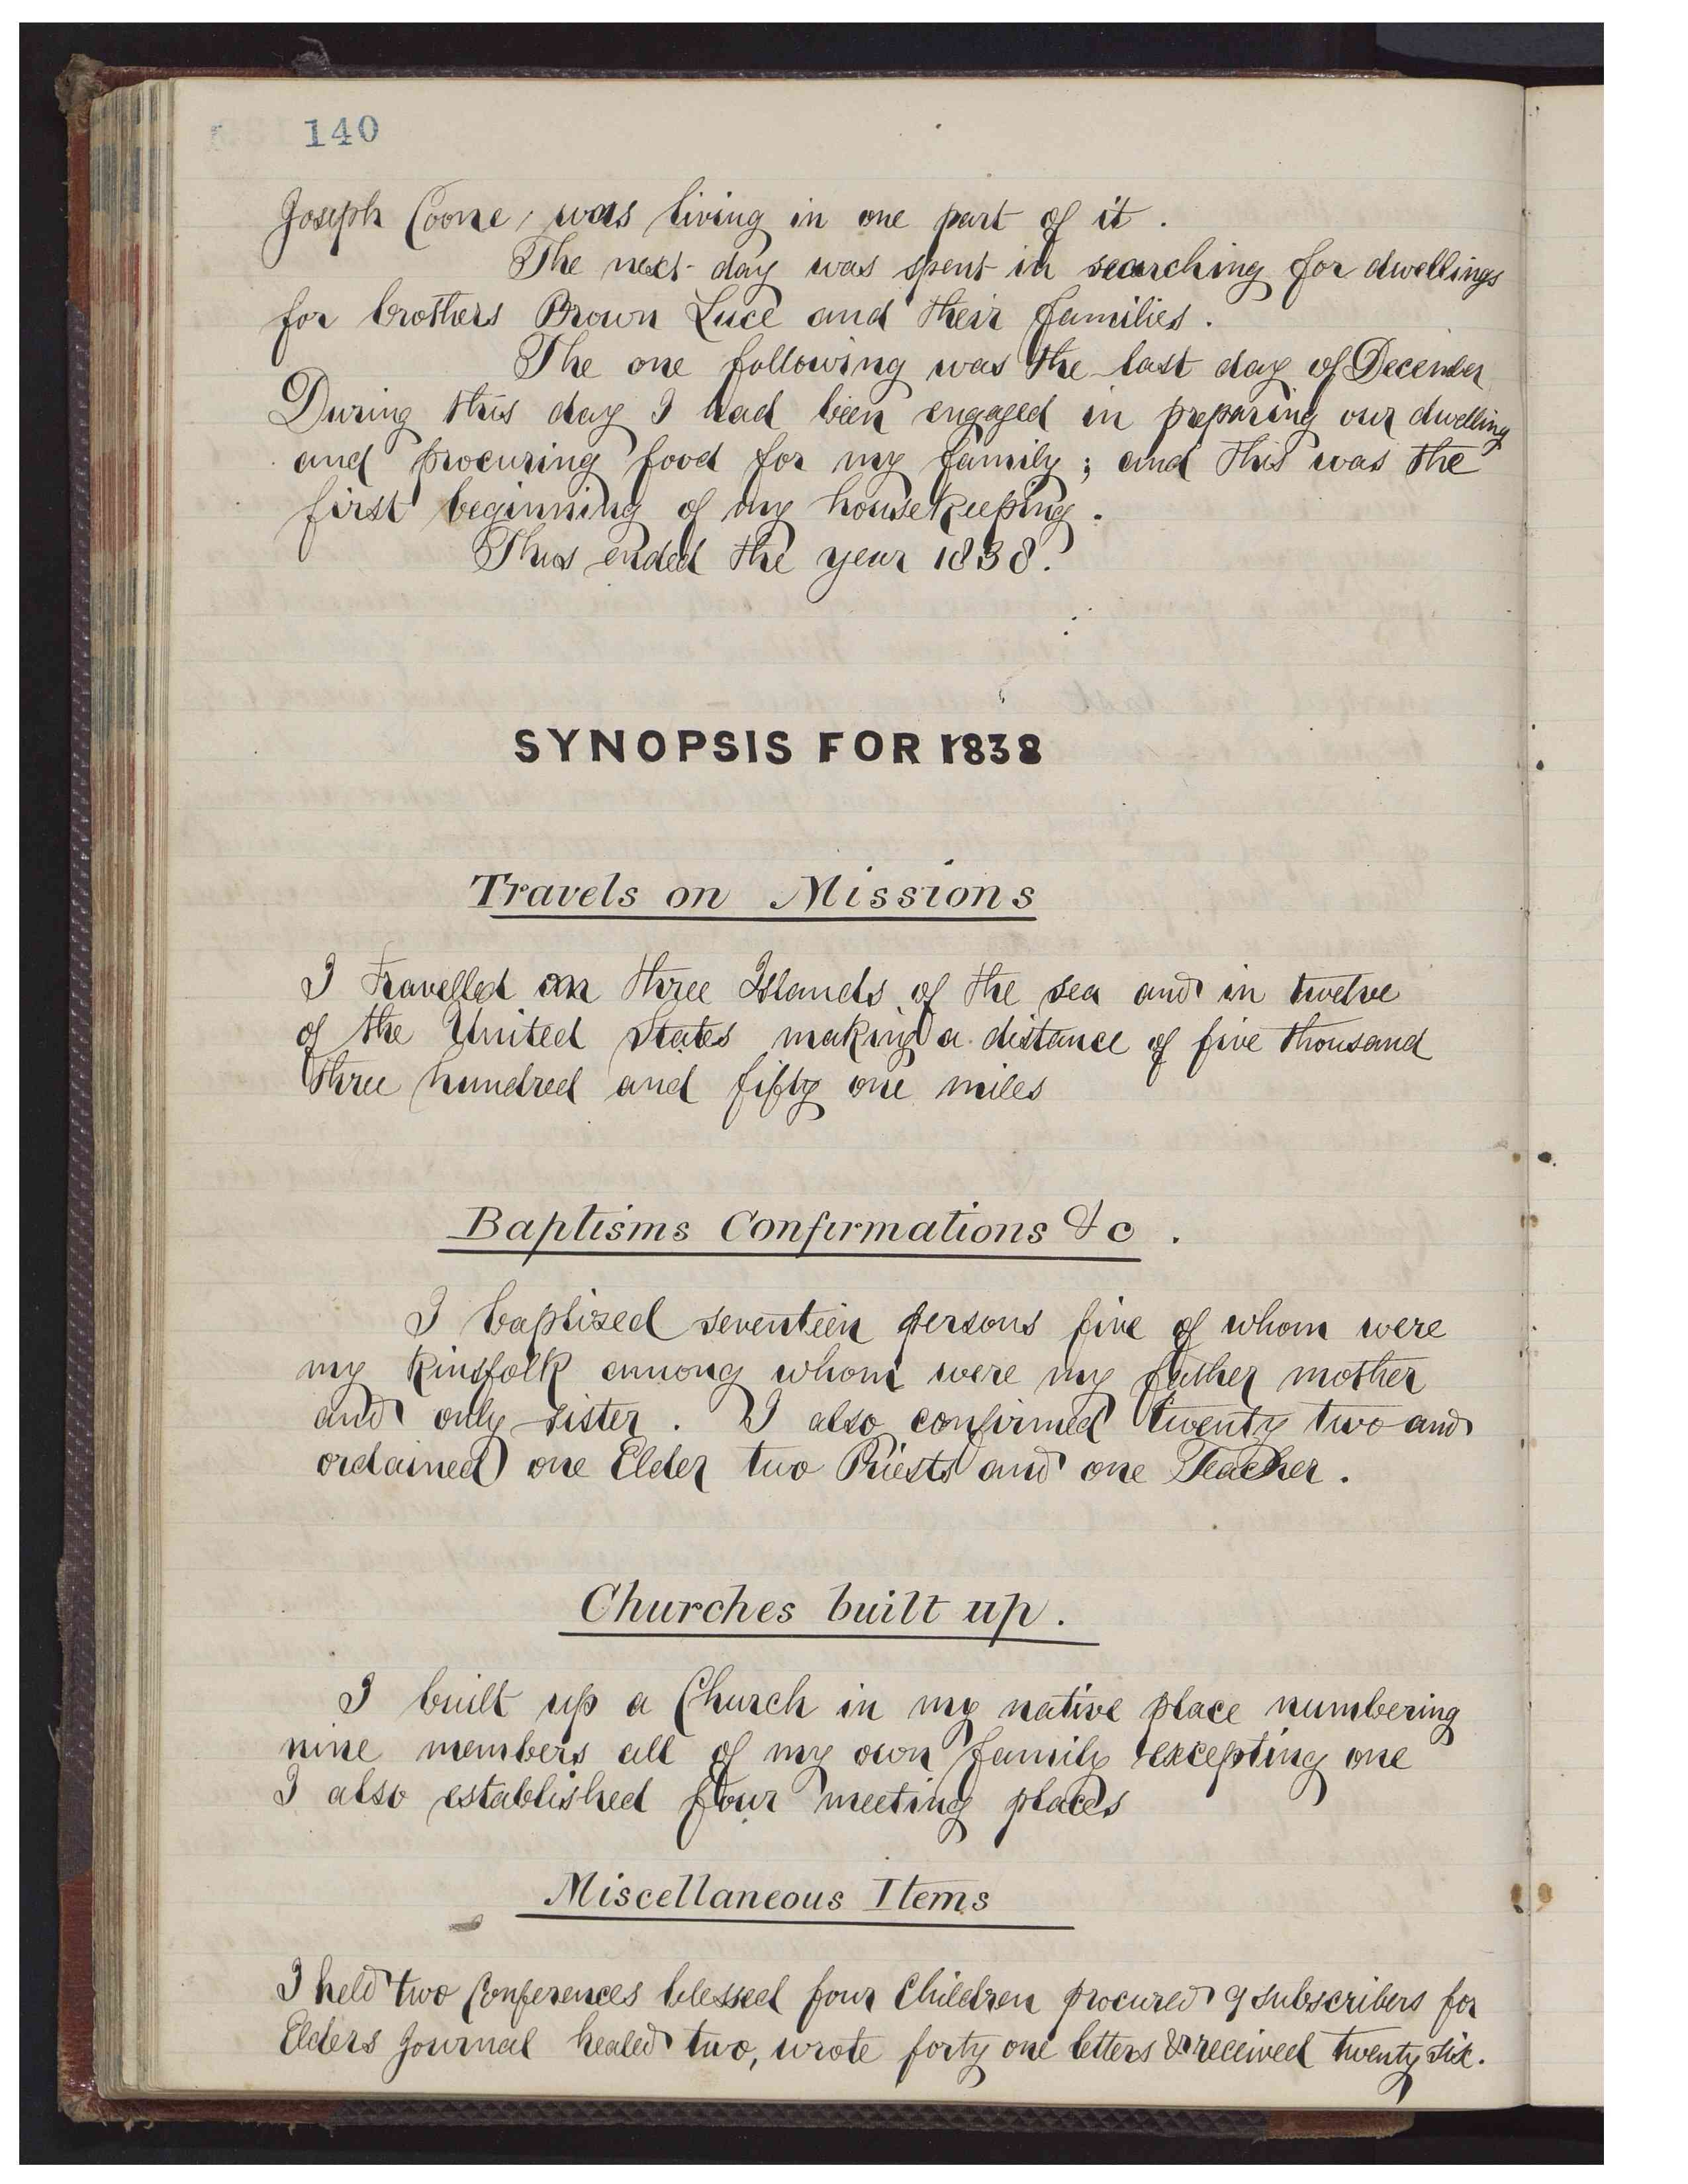 140
Joseph Coone, was living in one part of it .
The next day was spent in searching for dwellings
for brothers Brown Luce and their families .
The one following was the last day of December
During this day I had been engaged in preparing our dwelling
and procuring food for my family ; and this was the
first beginning of my housekeeping .
Thus ended the year 1838.
SYNOPSIS FOR 1838
Travels on Missions
I travelled on three Islands of the sea and in twelve
of the United States making a distance of five thousand
three hundred and fifty one miles
Baptisms Confirmations &c .
I baptized seventeen persons five of whom were
my kinsfolk among whom were my father mother
and only sister . I also confirmed twenty two and
ordained one Elder two Priests and one Teacher .
Churches built up .
I built up a Church in my native place numbering
nine members all of my own family excepting one
I also established four meeting places
Miscellaneous Items
I held two Conferences blessed four Children procured 9 subscribers for
Elders Journal healed two, wrote forty one letters & received twenty six.